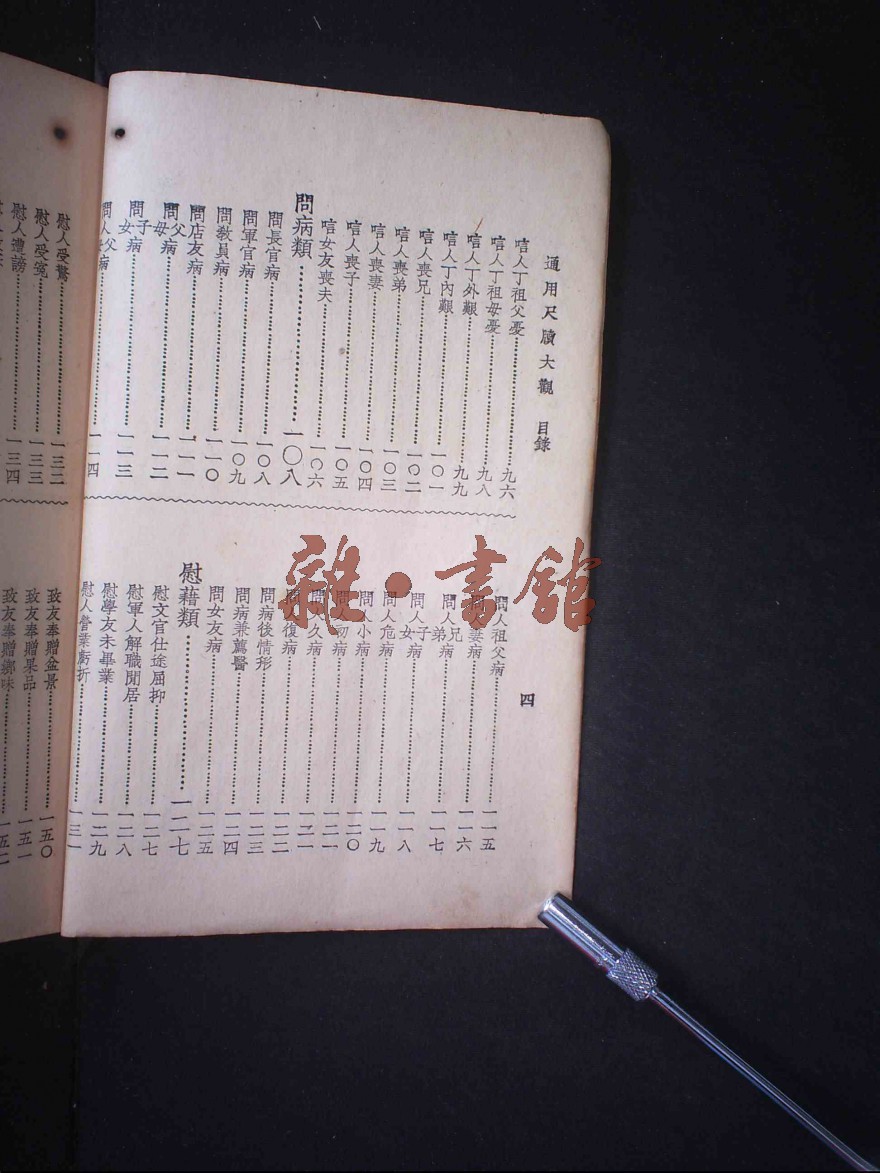 通用尺牘大觀 目錄
四
唁人丁祖父憂……九六
唁人丁祖母憂……九八
唁人丁外艱……九九
唁人丁內艱……一〇一
唁人喪兄……一〇二
唁人喪弟……一〇三
唁人喪妻……一〇四
唁人喪子……一〇五
唁女友喪夫……一〇六
問病類……一〇八
問長官病……一〇八
問軍官病……一〇九
問教員病……一一〇
問店友病……一一一
問父母病……一一二
問子女病……一一三
問人父母病……一一四
問人祖父病……一一五
問妻病……一一六
問人兄弟病……一一七
問人子女病……一一八
問人危病……一一九
問人小病……一二〇
問人初病……一二一
問人久病……一二一
問人復病……一二二
問病後情形……一二三
問病兼薦醫……一二四
問女友病……一二五
慰藉類……一二七
慰文官仕途屈抑……一二七
慰軍人解職閒居……一二八
慰學友未畢業……一二九
慰人營業虧折……一三一
慰人受驚……一三二
慰人受寃……一三三
慰人遭謗……一三四
致友奉贈盆景……一五〇
致友奉贈果品……一五一
致友奉贈鄉味……一五二
雜·書館